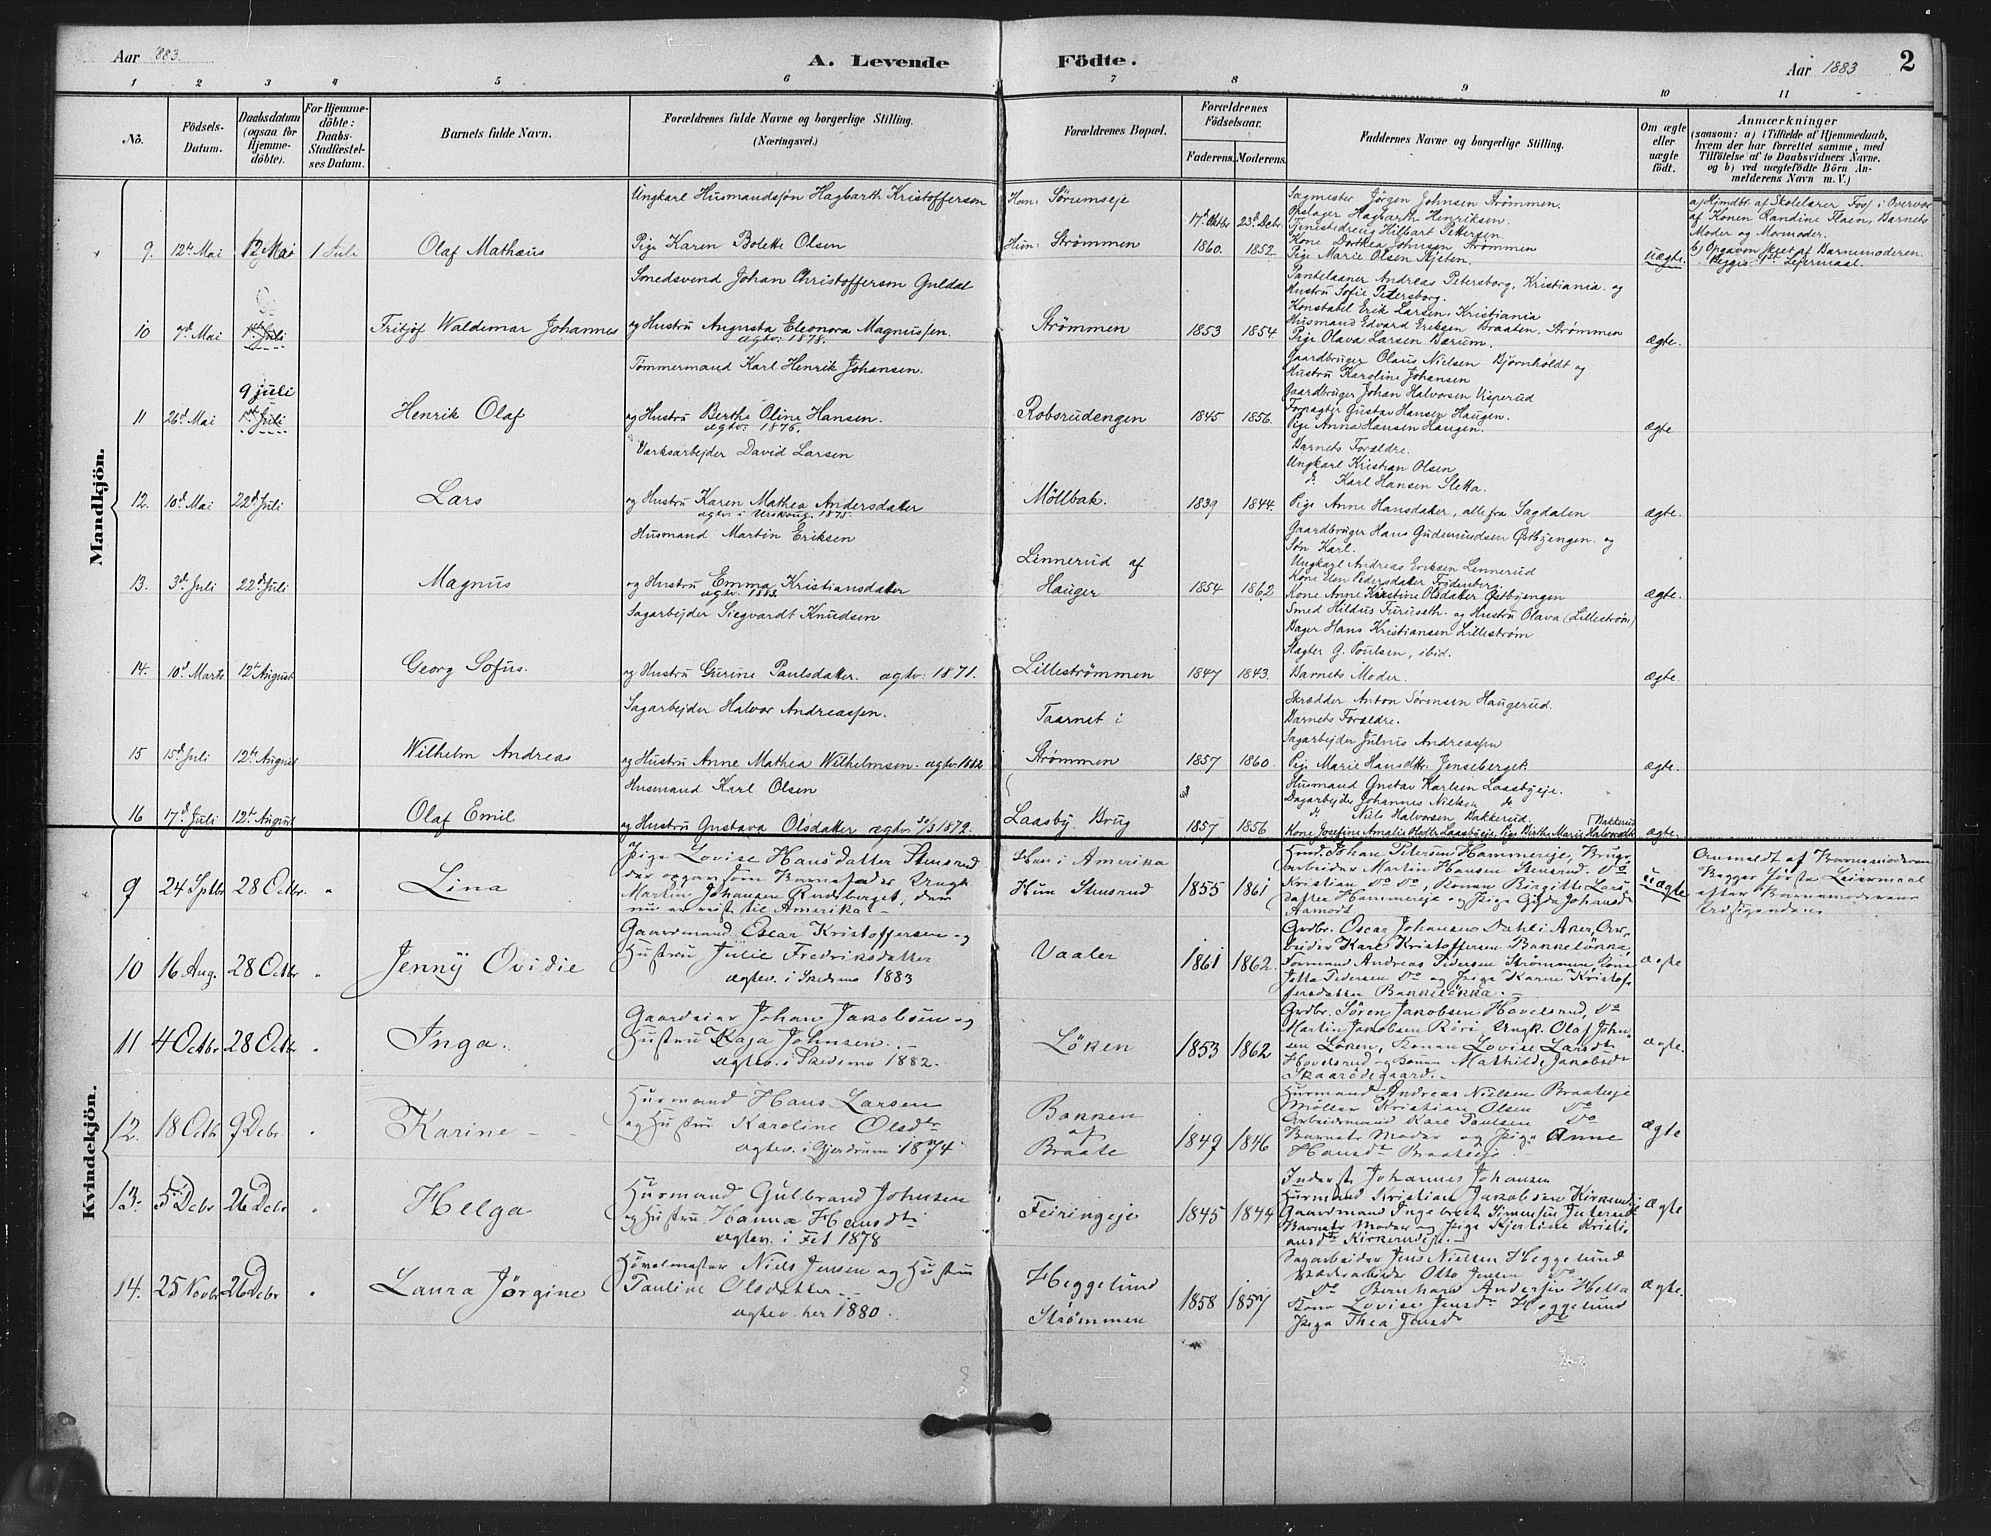 Aar 1883.
A. Levende Födte.
Aar 1883
2
1 2 3 4 5 6 7 8 9 10 11
No.
Födsels-Datum.
Daabsdatum (ogsaa for Hjemmedöbte).
For Hjemmedöbte: Daabs-Stadfæstelses Datum.
Barnets fulde Navn.
Forældrenes fulde Navne og borgerlige Stilling. (Næringsvei.)
Forældrenes Bopæl.
Forældrenes Födselsaar.
Faderens. Moderens.
Faddernes Navne og borgerlige Stilling.
Om ægte eller uægte födt.
Anmærkninger
(saasom: a) i Tilfælde af Hjemmedaab, hvem der har forrettet samme, med Tilföielse af to Daabsvidners Navne, og b) ved uægtefödte Börn Anmelderens Navn m. V.)
Mandkjön.
Ungkarl Husmandssøn Hagbarth Kristofferson
Han: Sørumseje
17d Oktbr 23d Decbr.
9. 12te Mai 12 Mai 1 Juli Olaf Mathæus
Pige Karen Bolette Olsen
Hun: Strømmen
1860. 1852.
Sagmester Jörgen Johnsen Strömmen.
Opslager Hagbarth Henriksen.
Tjenestedreng Hilbart Pettersen.
Kone Dorthea Johnsen Strömmen
Pige Marie Olsen
uægte.
a/ Hjmdbt. af Skolelærer Foss i Overvær
af Konen Randine Flaen, Barnets
Moder og Mormoder.
b) Opgaven skeet af Barnemoderen.
Begges 1ste Lejermaal.
Smedsvend Johan Christofferson Guldal
10 7d Mai 1ste Juli Fritjof Waldemar Johannes
og Hustru Augusta Eleonora Magnussen.
ægtv: 1878.
Strømmen
1853 1854.
Pantelaaner Andreas Petersborg, Kristiania. og
Hustru Sofie Petersborg.
Konstabel Erik Larsen, Kristiania
Husmand Edvard Eriksen Braaten, Strömmen
Pige Olava Larsen Bærum.
ægte.
Tömmermand Karl Henrik Johansen.
9 juli
11 26d Mai 1ste Juli Henrik Olaf
og Hustru Berthe Oline Hansen.
ægtv: 1876.
Robsrudengen
1845 1856.
Gaardbruger Olaus Nielsen Bjørnholdt og
Hustru Karoline Johansen
Gaardbruger Johan Halvorsen Visperud
Forpagter Gustav Hansen Haugen.
Pige Anna Hansen Haugen.
ægte
Værksarbejder David Larsen
12. 10d Mai 22d Juli Lars
og Hustru Karen Mathea Andersdatter
ægtv. i Urskoug. 1873.
Möllbak.
1839 1844.
Barnets Forældre.
Ungkarl Kristian Olsen
do Karl Hansen Sletta.
Pige Anne Hansdatter, alle fra Sagdalen
ægte.
Husmand Martin Eriksen
13. 3d Juli 22d Juli Magnus
og Hustru Emma Kristiansdatter
ægtv. 1883.
Linnerud af
Hauger
1854 1862
Gaardbruger Hans Gudmundsen Østbyengen. og
Søn Karl.
Ungkarl Andreas Eriksen Linnerud
Kone Elen Pedersdatter Frydenberg.
Kone Anne Kirstine Olsdatter Østbyengen
ægte.
Sagarbejder Siegvardt Knudsen
14. 10d Marts 12te August Georg Sofus.
og Hustru Gurine Paulsdatter. ægtv: 1871.
Lilleströmmen
1847 1843.
Smed Hildus Furuseth. og Hustru Olava (Lilleström)
Bager Hans Kristiansen Lilleström
Slagter G. Poulsen, ibid.
Barnets Moder.
ægte.
Sagarbejder Halvor Andreassen.
15 15d Juli 12te August Wilhelm Andreas
og Hustru Anne Mathea Wilhelmsen. ægtv. 1882
Taarnet i
Strømmen
1857 1860.
Skrædder Anton Sørensen Haugerud.
Barnets Forældre.
Sagarbejder Julius Andreassen
Pige Marie Hansdtr. Jenseberget.
ægte.
Husmand Karl Olsen
16 17d Juli 12te August Olaf Emil
og Hustru Gustava Olsdatter ægtv: 30/3 1879.
Laasby Brug
1857 1856
Husmand Gustav Karlsen Laasbyeje.
Dagarbejder Johannes Nielsen do
do Niels Halvorsen Bakkerud.
Kone Josefine Amalie Laasbyeje Pige Birthe Marie Halvorsdtr Bakkerud
ægte.
Kvindekjön.
9 24 Sptbr 28 Octbr. " Lina
Pige Lovise Hansdatter Stensrud
der opgav som Barnefader Ungk.
Martin Johansen Rudsberget, dem
nu er reist til Amerika.
Han i Amerika
Hun Stensrud
1855 1861
Husm. Johan Petersen Hammereje, Brugs
arbeider Martin Hansen Stensrud. Do
Kristian Do Do, Konen Birgitte Lars
datter Hammereje og Pige Gyda Johansdr
Aamodt
uægte
Anmeldt af Barnemoderen
Begges første Leiermaal
efter Barnemoderens
Udsigende.
10 16 Aug. 28 Octbr " Jenny Ovidie
Gaardmand Oscar Kristoffersen og
Hustru Julie Fredriksdatter
ægtev. i Skedsmo 1883
Vaaler
1861 1862.
Grdbr. Oscar Johansen Dahl i Aker, Ar-
beider Karl Kristoffersen Bakkeløkka,
Formand Andreas Pedersen Strømmen, Kone
Jetta Pedersen Do og Pige Karen Kristof
fersdatter Bakkeløkka.
ægte
11 4 Octbr 28 Octbr " Inga.
Gaardeier Johan Jakobsen og
Hustru Kaja Johnsen.
ægtev. i Skedsmo 1882.
Løken
1853 1862
Grdbr. Søren Jakobsen Hovelsrud, Do
Martin Jakobsen Røri, Ungk. Olaf John-
sen Løken, Konen Lovise Larsdr
Hovelsrud og Konen Mathilde Jakobsdr
Skaarødegaard.
ægte.
12. 18 Octbr 9 Decbr " Karine
Husmand Hans Larsen
og Hustru Karoline Olsdr
ægtev. i Gjerdrum 1874.
Bakken
af
Braate
1849 1846
Husmand Andreas Nielsen Braateeje
Møller Kristian Olsen Do
Arbeidsmand Karl Paulsen Do
Barnets Moder og Pige Anne
Hansdr Braateeje
ægte
13. 5 Decbr 26 Decbr " Helga
Husmand Gulbrand Johnsen
og Hustru Hanna Hansdr
ægtev. i Fet 1878
Feiringeje
1845 1844
Inderst Johannes Johansen
Husmand Kristian Jakobsen Kirkerudeje
Gaardmand Ingebreth Simensen
Barnets Moder og Pige Kjerstine Kristi-
ansdr Kirkerudeje.
ægte
14. 25 Novbr 26 Decbr " Laura Jørgine
Høvelmester Niels Jensen og Hustru
Pauline Olsdatter
ægtev. her 1880.
Heggelund
Strømmen
1858 1857
Sagarbeider Jens Nielsen Heggelund
Otto Jensen Do
Do Bernhard Andersen Hella
Kone Lovise Jensdr Heggelund
Pige Thea Jensdr Do
ægte.